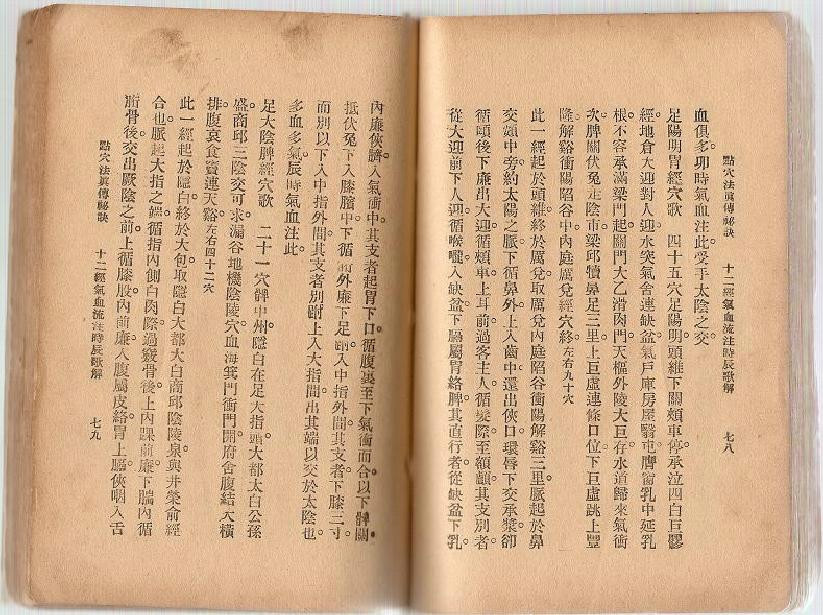 點穴法眞傳秘訣　十二經氣血流注時辰歌解　七八
血俱多。卯時氣血注此。受手太陰之交
足陽明胃經穴歌　四十五穴足陽明。頭維下關頰車停。承泣四白巨髎
經。地倉大迎對人迎。水突氣舍連缺盆。氣戶庫房屋翳屯。膺窗乳中延乳
根。不容承滿梁門起。關門太乙滑肉門。天樞外陵大巨存。水道歸來氣衝
次。髀關伏兔走陰市。梁邱犢鼻足三里。上巨虛連條口位。下巨虛跳上豐
隆。解谿衝陽陷谷中。內庭厲兌經穴終。左右九十穴
此一經起於頭維。終於厲兌。取厲兌內庭陷谷衝陽解谿三里。脈起於鼻
交頞中。旁約太陽之脈。下循鼻外。上入齒中。還出俠口環唇。下交承漿。卻
循頤後下廉出大迎。循頰車。上耳前。過客主人。循髮際至額顱。其支別者。
從大迎前下人迎。循喉嚨入缺盆。下膈屬胃絡脾。其直行者。從缺盆下乳。
內廉。俠臍。入氣衝中。其支者。起胃下口。循腹裏。至下氣衝而合。以下髀關。
抵伏兔。下入膝臏中。下循䯒外廉。下足跗。入中指外間。其支者。下膝三寸
而別。以下入中指外間。其支者。別跗上。入大指間。出其端。以交於太陰也。
多血多氣。辰時氣血注此。
足太陰脾經穴歌　二十一穴脾中州。隱白在足大指頭。大都太白公孫
盛。商邱三陰交可求。漏谷地機陰陵穴。血海箕門衝門開。府舍腹結大橫
排。腹哀食竇連天谿。左右四十二穴
此一經起於隱白。終於大包。取隱白大都太白商邱陰陵泉。與井滎俞經
合也。脈起大指之端。循指內側白肉際。過竅骨後。上內踝前廉。下腨內。循
䯒骨後。交出厥陰之前。上循膝股內前廉。入腹屬脾絡胃。上膈俠咽。入舌
點穴法眞傳秘訣　十二經氣血流注時辰歌解　七九